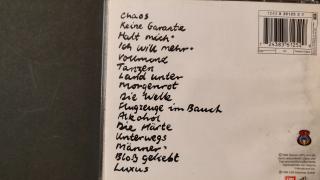 Chaos
Keine Garantie
Halt mich*
Ich will mehr*
Vollmond
Tanzen
Land unter
Morgenrot
Die Welle
Flugzeuge im Bauch
Alkohol
Die Härte
Unterwegs
Männer*
Bloß geliebt
Luxus